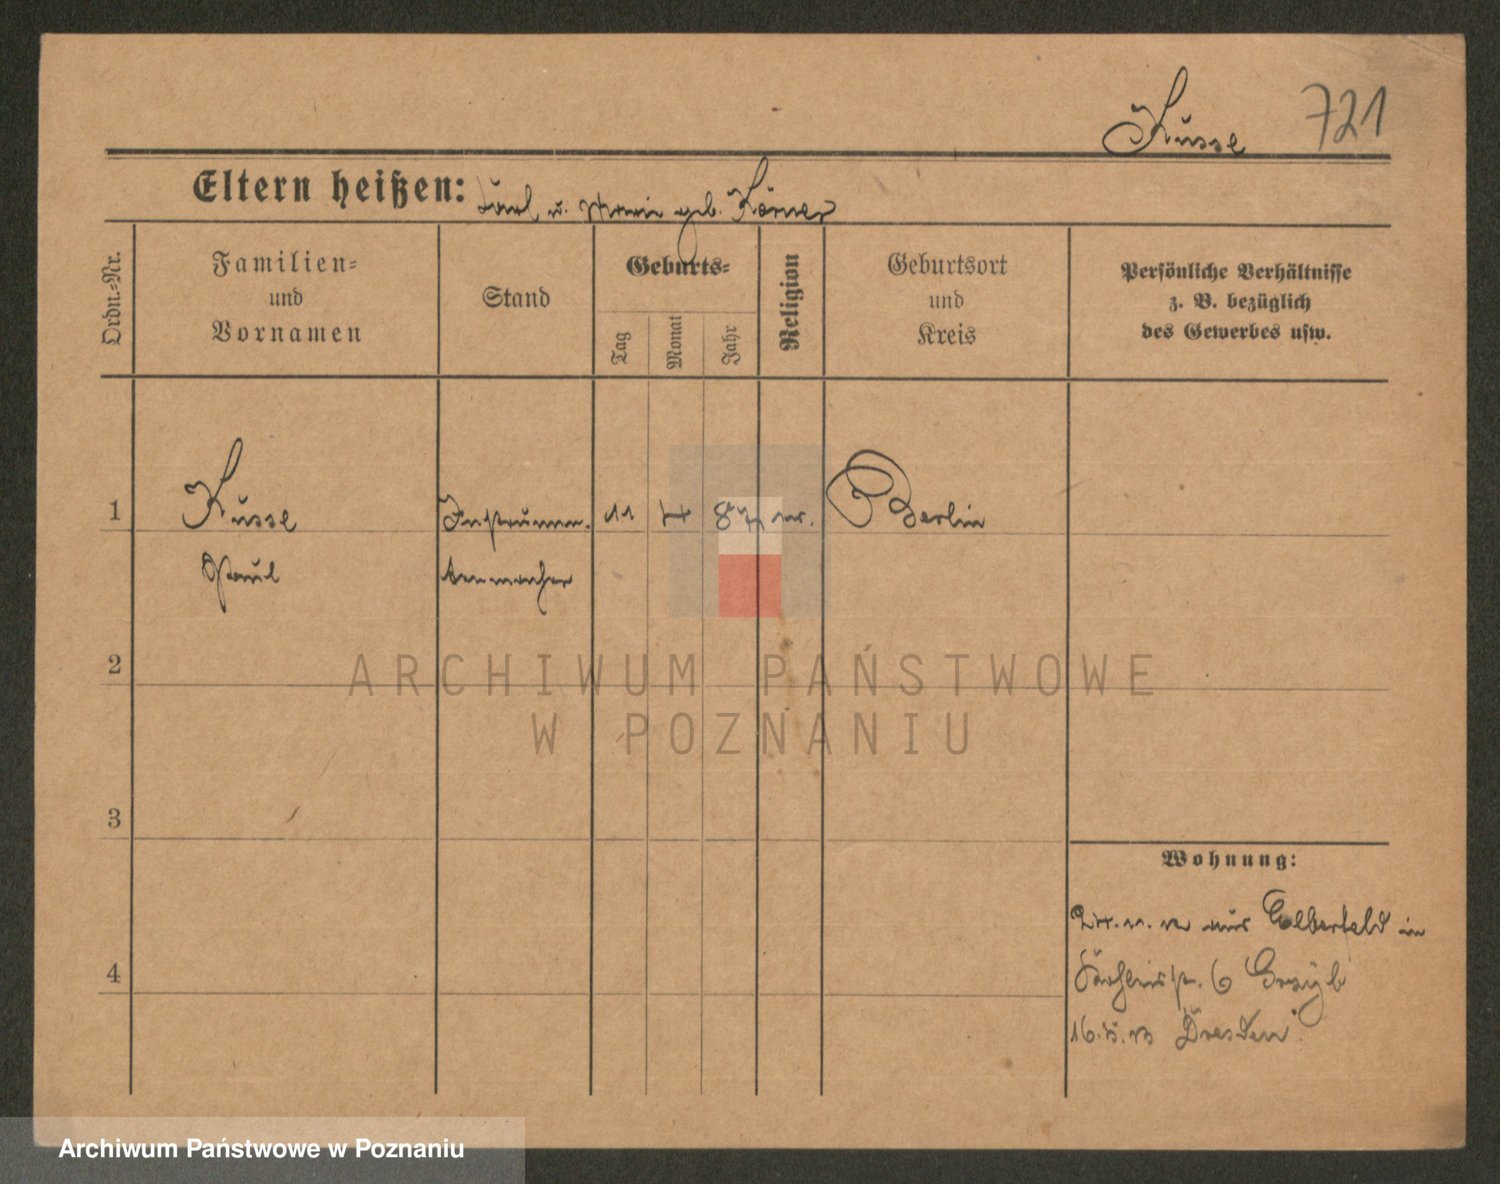 Kusse 721
Eltern heißen: Karl u. Marie geb. Körner
Ordn.-Nr.
Familien-
und
Vornamen
Stand
Geburts-
Tag
Monat
Jahr
Religion
Geburtsort
und
Kreis
Persönliche Verhältnisse
z. B. bezüglich
des Gewerbes usw.
1 Kusse Instrumen. 11 4 87 Berlin
Paul tenmacher
2
ARCHIWUM PAŃSTWOWE
W POZNANIU
3
Wohnung:
aus Elberfeld in
4
6
16.5.13 Dresden
Archiwum Państwowe w Poznaniu